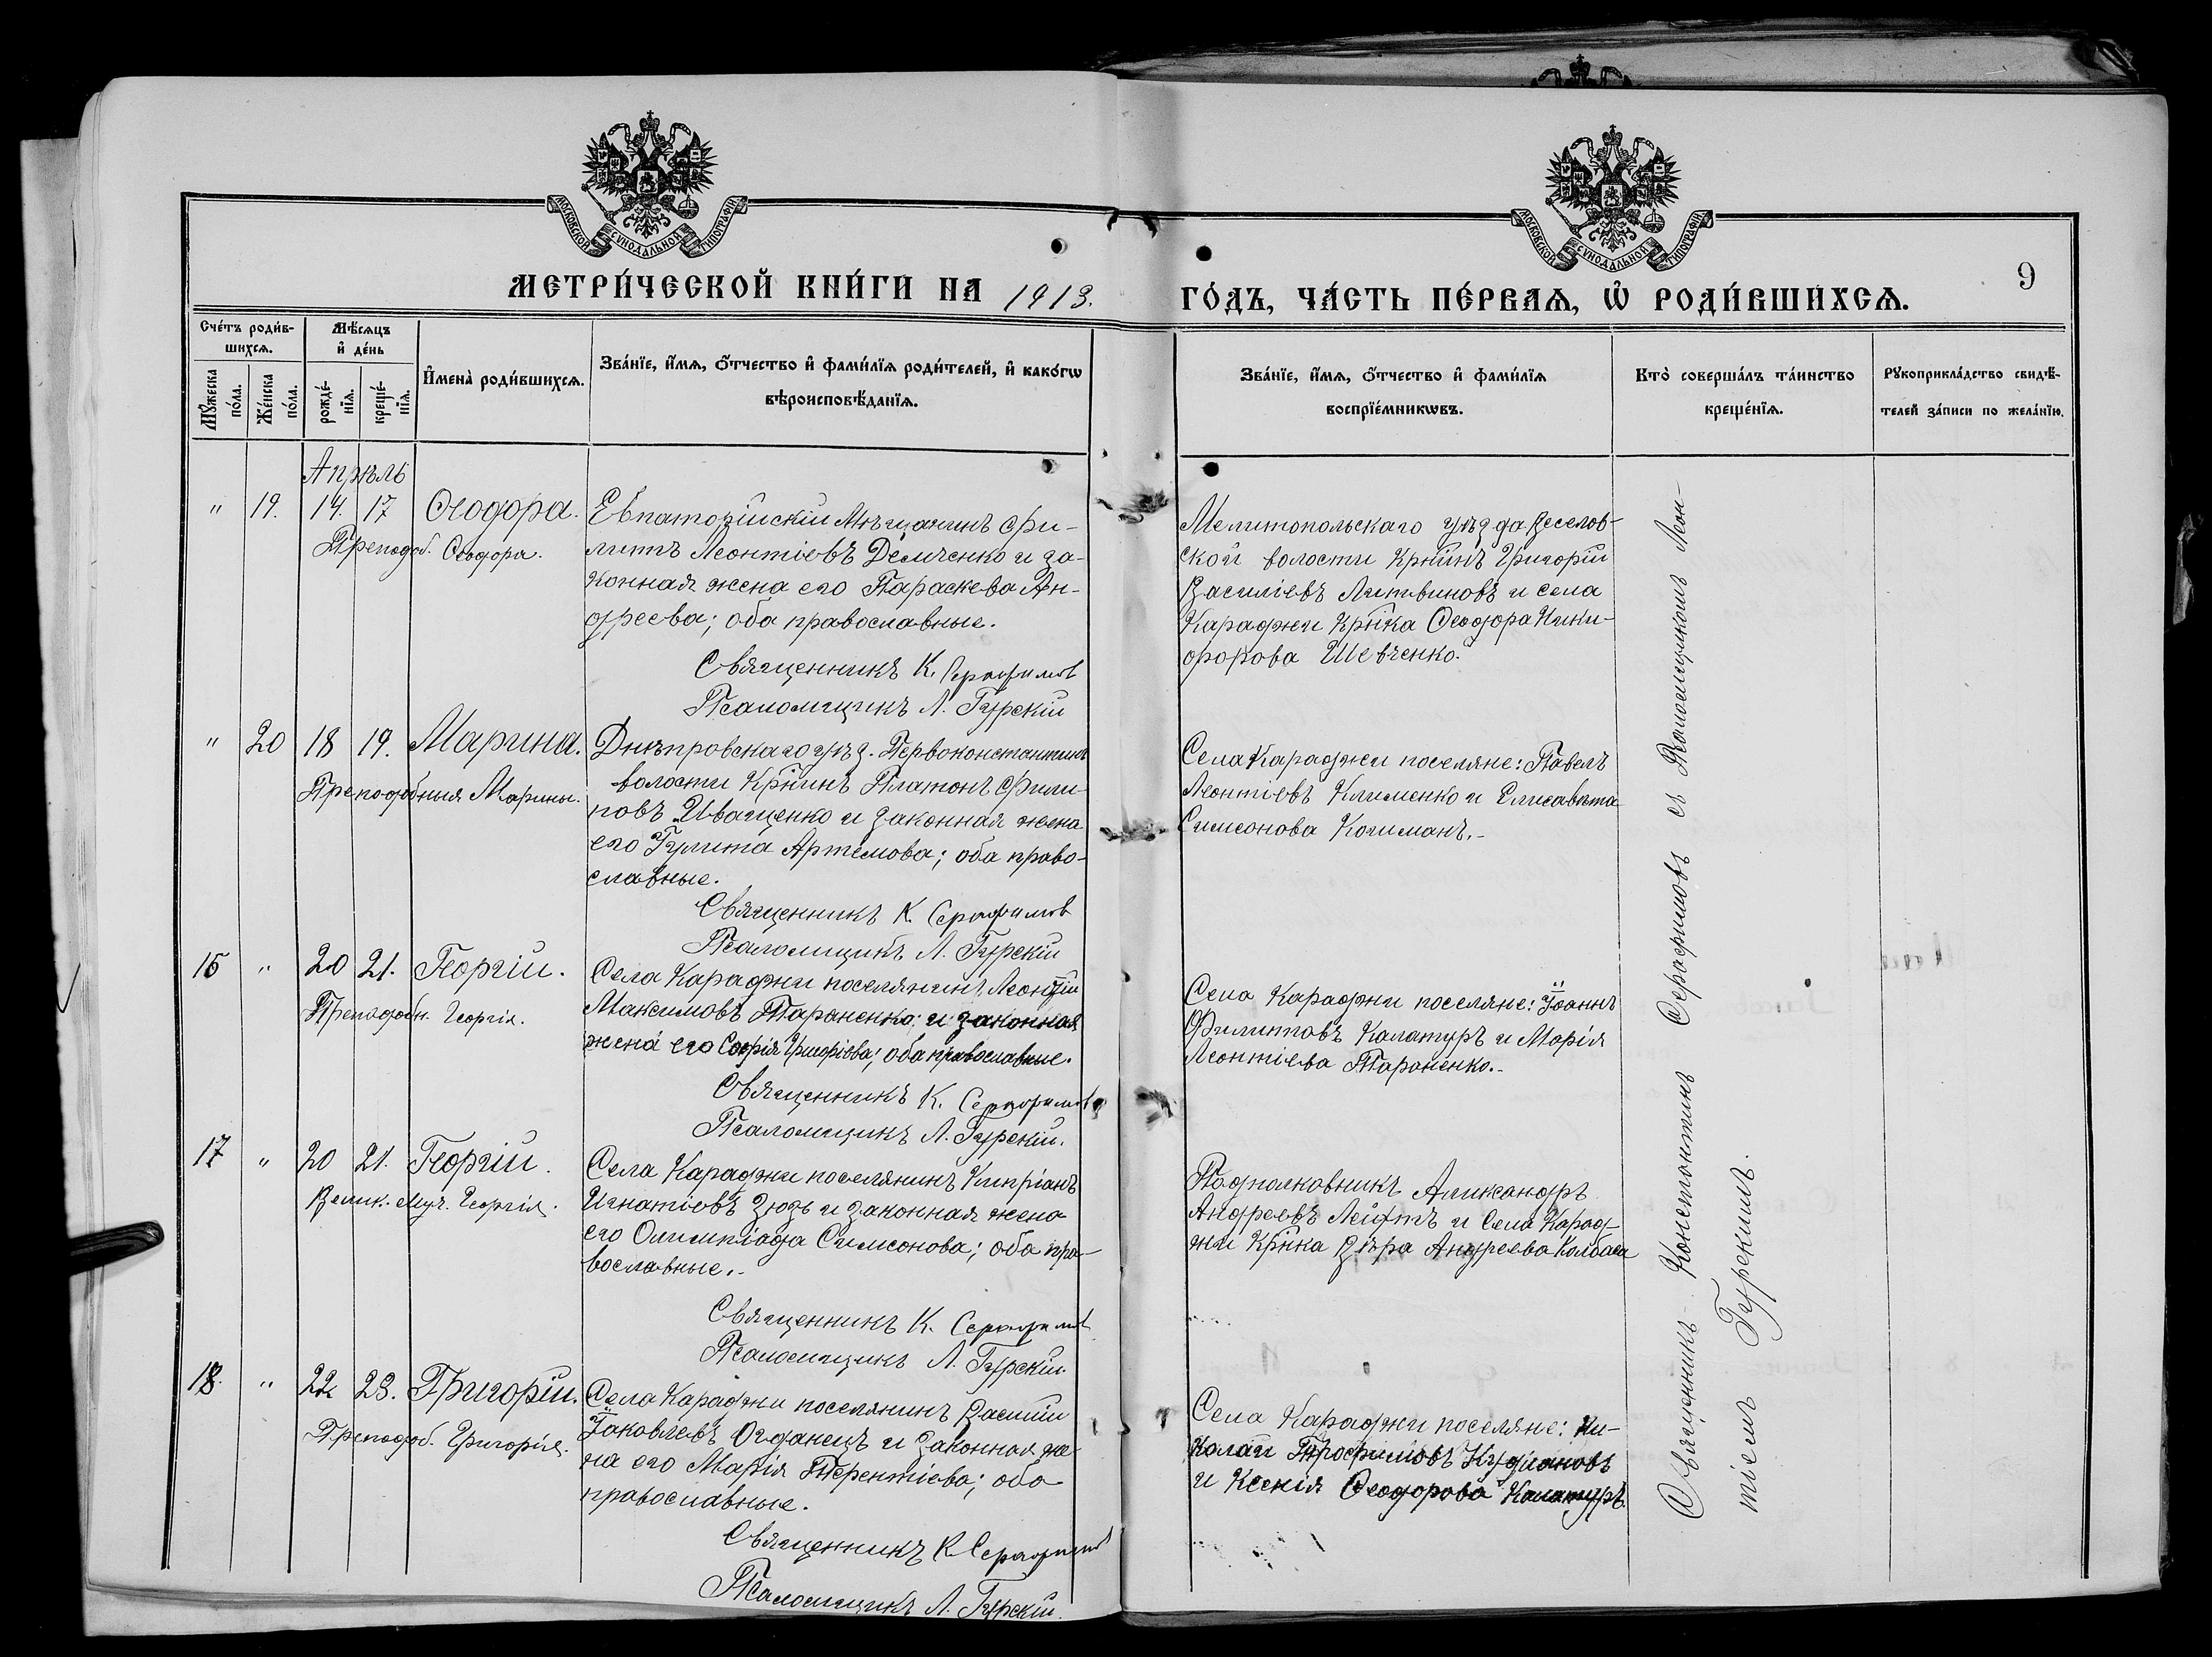 МОСКОВСКОЙ СѴНОДАЛЬНОЙ ТИПОГРАФІИ
МОСКОВСКОЙ СѴНОДАЛЬНОЙ ТИПОГРАФІИ
МЕТРИ́ЧЕСКОЙ КНИ́ГИ НА 1913.
ГО́ДЪ, ЧА́СТЬ ПЕ́РВАѦ, Ѽ РОДИ́ВШИХСѦ.
9
Сче́тъ роди́в-
шихсѧ.
Мꙋ́жеска по́ла.
Же́нска по́ла.
Мѣ́сѧцъ
и҆ де́нь
рожде́-
нїѧ.
креще́-
нїѧ.
И҆мена̀ роди́вшихсѧ.
Зва́нїе, и҆́мѧ, ѻ҆́тчество и҆ фами́лїѧ роди́телей, и҆ како́гѡ
вѣроисповѣ́данїѧ.
Зва́нїе, и҆́мѧ, ѻ҆́тчество и҆ фами́лїѧ
воспрїе́мникѡвъ.
Кто̀ соверша́лъ та́инство
креще́нїѧ.
Рꙋкоприкла́дство свидѣ́-
телей за́писи по жела́нїю.
Апрѣль
" 19. 14. 17 Ѳеодора.
Преподоб. Ѳеодоры.
Евпаторійскій Мѣщанинъ Фи-
липпъ Леонтіевъ Демченко и за-
конная жена его Параскева Ан-
дреева; оба православные.
Священникъ К. Серафимов
Псаломщикъ Л. Гурскій
Мелитопольскаго уѣзда Веселов-
ской волости Кр̃нинъ Григорій
Василіевъ Литвиновъ и села
Караджи Кр̃нка Ѳеодора Ники-
форова Шевченко.
" 20 18 19. Марина.
Преподобныя Марины.
Днѣпровскаго уѣз. Первоконстантин
волости Кр̃нинъ Платонъ Фили-
повъ Иващенко и законная жена
его Гулита Артемова; оба право-
славные.
Священникъ К. Серафимов
Псаломщикъ Л. Гурскій
Села Караджи поселяне: Павелъ
Леонтіевъ Клименко и Елисавета
Симеонова Кочиманъ.-
16 " 20 21. Георгій.
Преподобн. Георгія.
Села Караджи поселянинъ Леонтій
Максимовъ Тараненко и законная
жена его Софія Григоріева; оба православные.
Священникъ К. Серафимов
Псаломщикъ Л. Гурскій.
Села Караджи поселяне: Іоаннъ
Филипповъ Калатуръ и Марія
Леонтіева Тараненко.-
17 " 20 21. Георгій.
Велик. Муч. Георгія.
Села Караджи поселянинъ Кипріанъ
Игнатіевъ Зюзь и законная жена
его Олимпіада Симеонова; оба пра-
вославные.-
Священникъ К. Серафимов
Псаломщикъ Л. Гурскій.
Подполковникъ Александръ
Андреевъ Лейфтъ и Села Карад-
жи Кр̃нка Вѣра Андреева Колбаса
18. " 22 23. Григорій.
Преподоб. Григорія.
Села Караджи поселянинъ Василій
Іаковлевъ Огданецъ и законная же-
на его Марія Терентіева; оба
православные.
Священникъ К. Серафимов
Псаломщикъ Л. Гурскій.
Села Караджи поселяне: Ни-
колай Трофимовъ Кудиновъ
и Ксенія Ѳеодорова Калатуръ.
Священникъ Константинъ Серафимовъ съ Псаломщикомъ Леон-
тіемъ Гурскимъ.